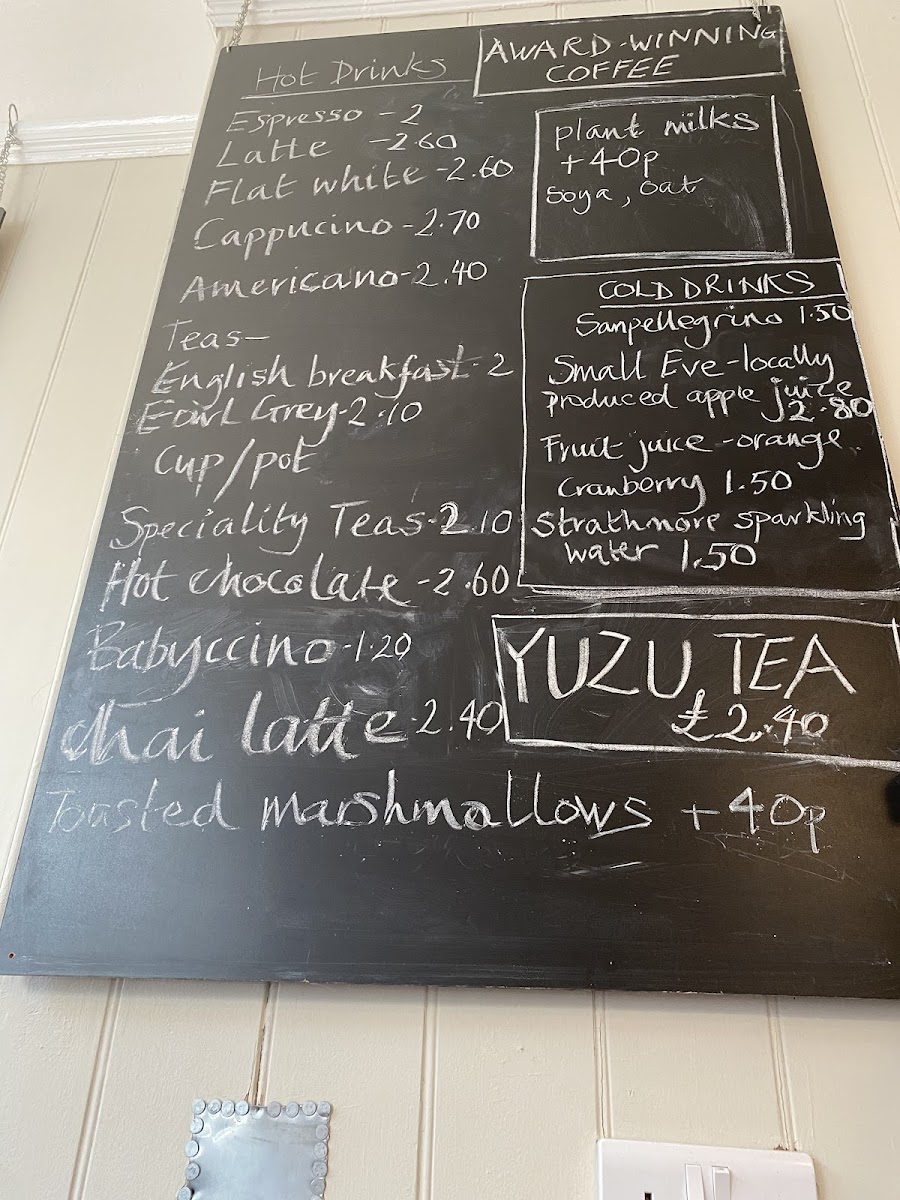 Hot Drinks
Espresso - 2
Latte - 2.60
Flat white - 2.60
Cappucino - 2.70
Americano - 2.40
Teas -
English breakfast - 2
Earl Grey - 2.10
Cup/pot
Speciality Teas - 2.10
Hot chocolate - 2.60
Babyccino - 1.20
Chai latte - 2.40
Toasted marshmallows +40p
AWARD-WINNING
COFFEE
plant milks
+40p
soya, oat
COLD DRINKS
Sanpellegrino 1.50
Small Eve - locally
produced apple juice
2.80
Fruit juice - orange
Cranberry 1.50
Strathmore sparkling
water 1.50
YUZU TEA
£2.40